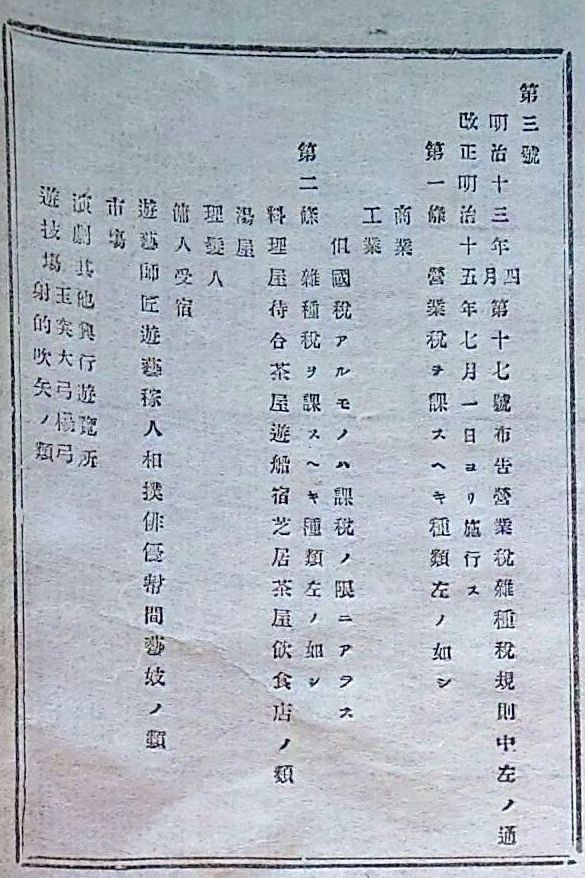 第三號
明治十三年四月第十七號布告營業稅雜種稅規則中左ノ通
改正明治十五年七月一日ヨリ施行ス
第一條　營業稅ヲ課スヘキ種類左ノ如シ
商業
工業
但國稅アルモノハ課稅ノ限ニアラス
第二條　雜種稅ヲ課スヘキ種類左ノ如シ
料理屋待合茶屋遊船宿芝居茶屋飲食店ノ類
湯屋
理髮人
傭人受宿
遊藝師匠遊藝稼人相撲俳優幇間藝妓ノ類
市場
演劇其他興行遊覽所
遊技場玉突大弓楊弓射的吹矢ノ類